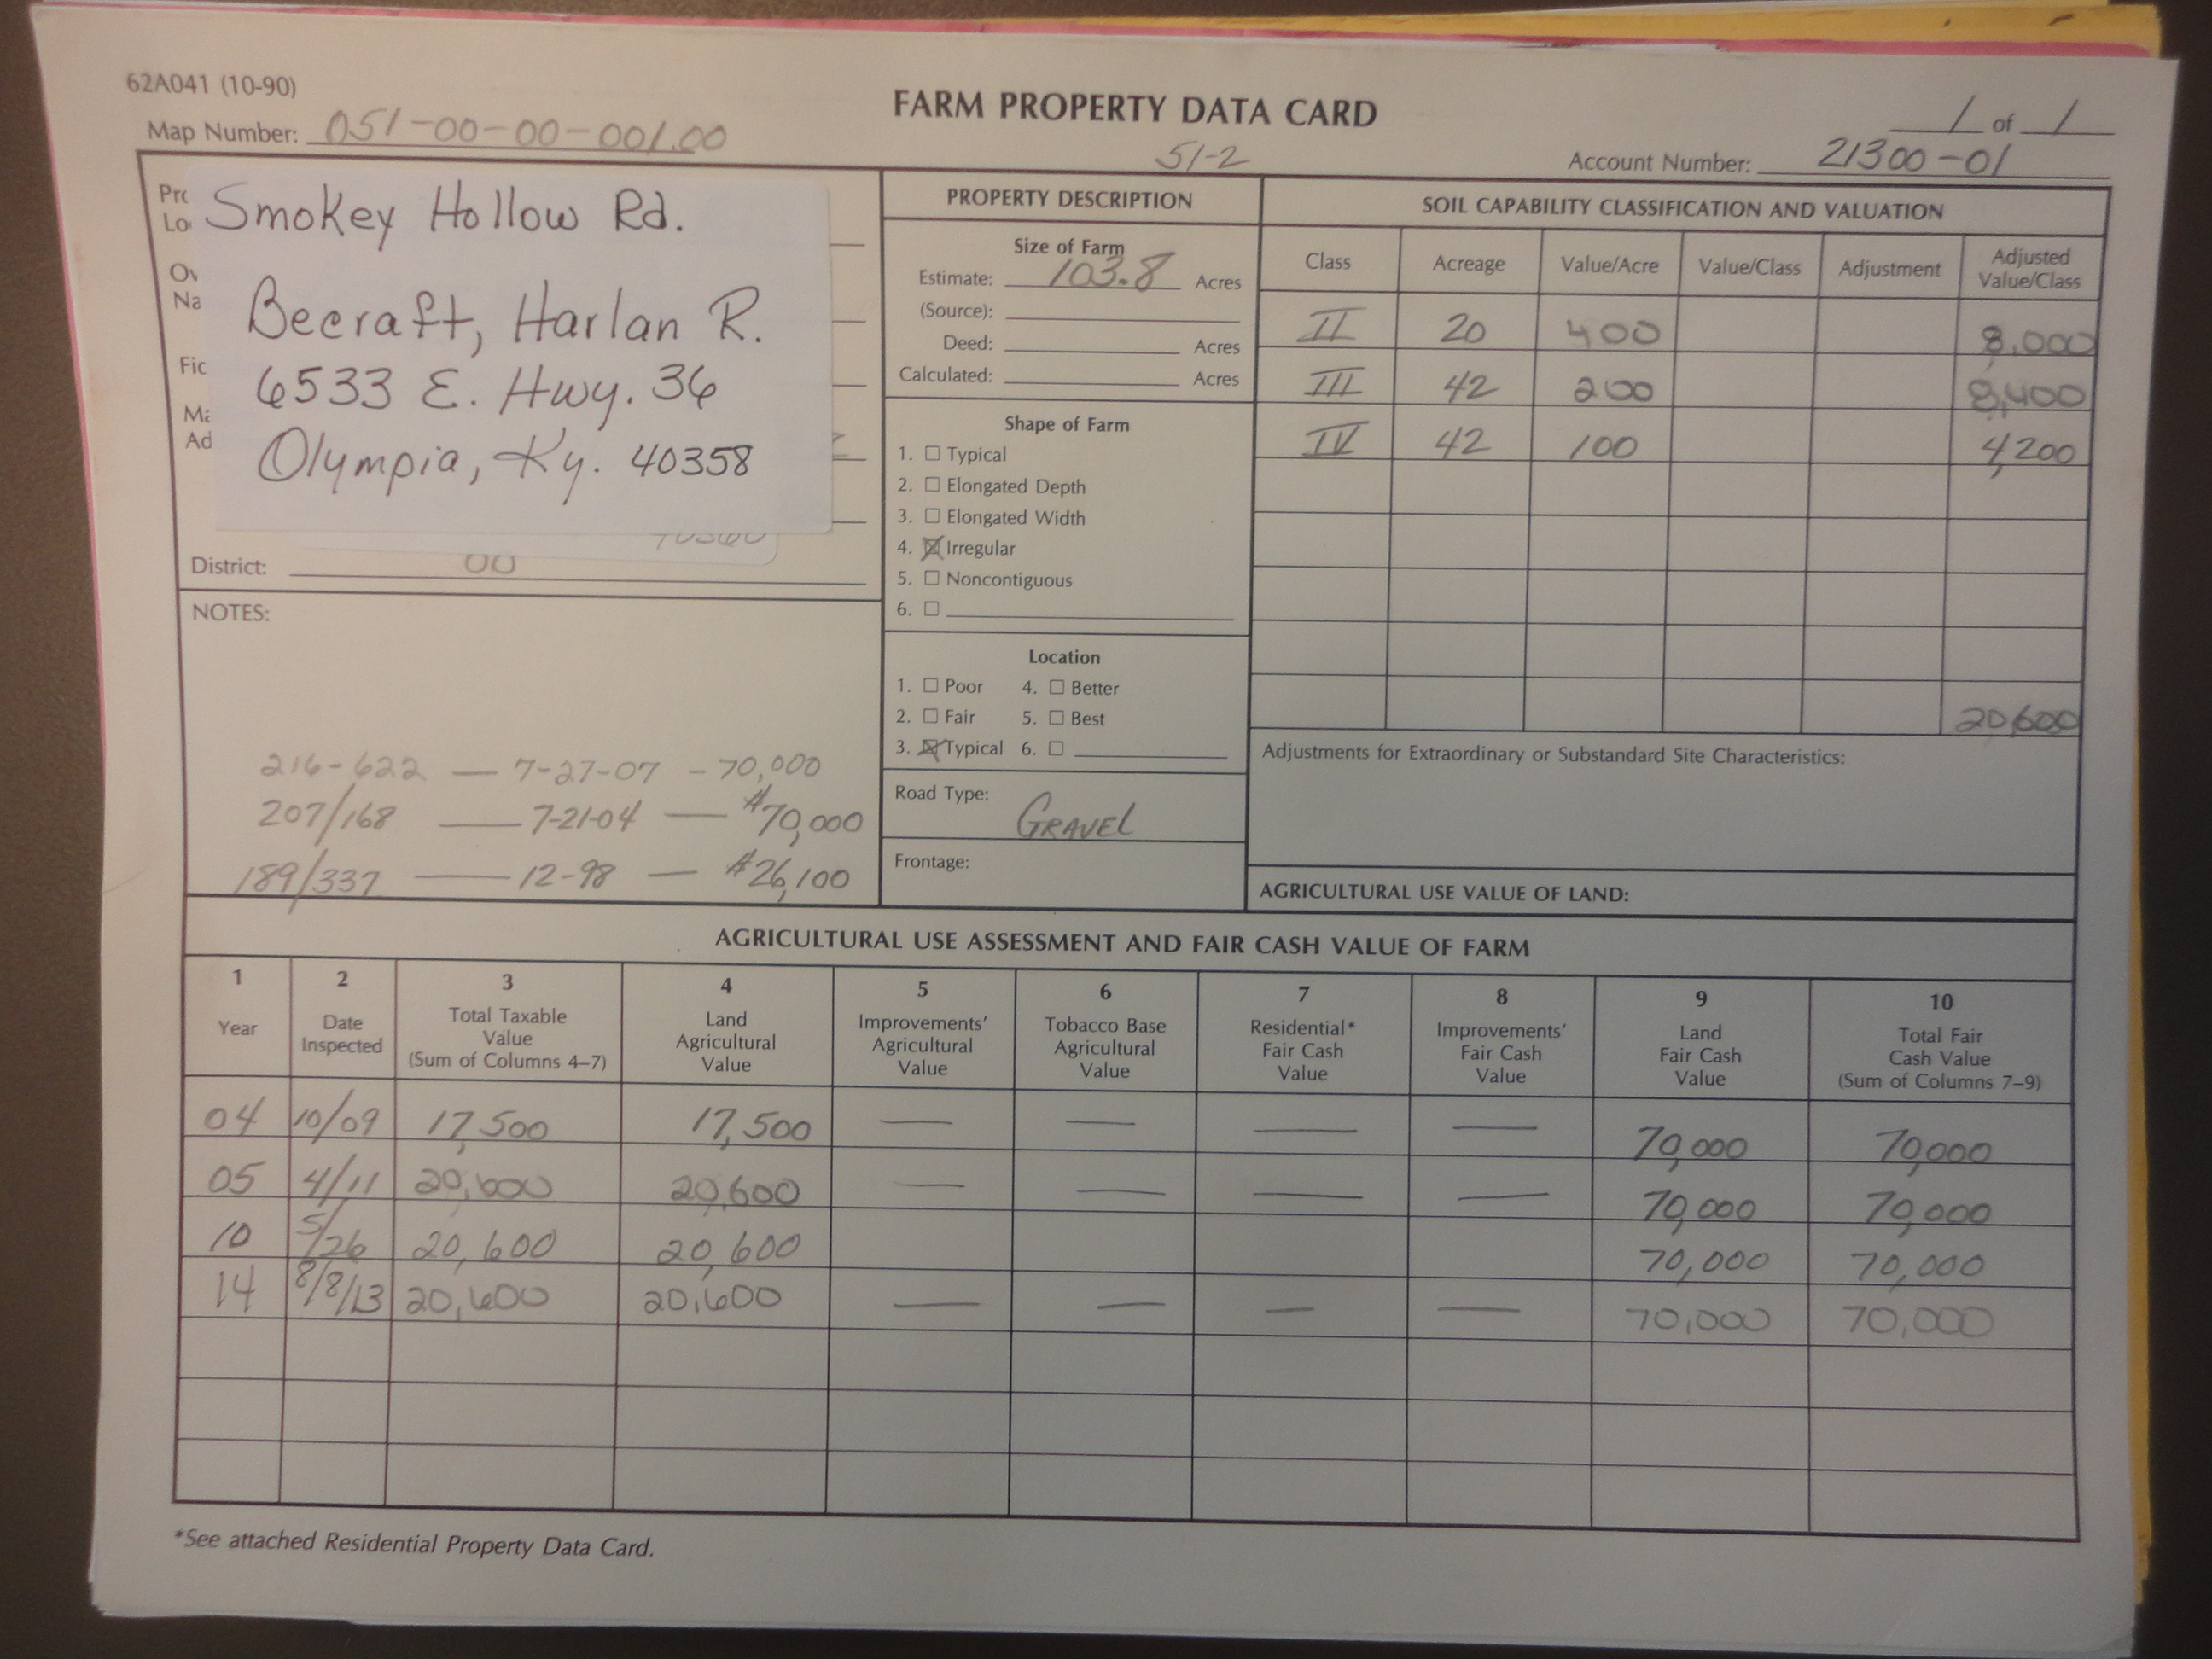 62A041 (10-90)
FARM PROPERTY DATA CARD
1 of 1
Map Number: 051-00-00-001.00
51-2
Account Number: 21300-01
Smokey Hollow Rd.
Becraft, Harlan R.
6533 E. Hwy. 36
Olympia, Ky. 40358
District: 00
NOTES:
216-622 — 7-27-07 - 70,000
207/168 — 7-21-04 — $70,000
189/337 — 12-98 — $26,100
PROPERTY DESCRIPTION
Size of Farm
Estimate: 103.8 Acres
(Source):
Deed: Acres
Calculated: Acres
Shape of Farm
1. ☐ Typical
2. ☐ Elongated Depth
3. ☐ Elongated Width
4. ☒ Irregular
5. ☐ Noncontiguous
6. ☐
Location
1. ☐ Poor 4. ☐ Better
2. ☐ Fair 5. ☐ Best
3. ☒ Typical 6. ☐
Road Type: GRAVEL
Frontage:
SOIL CAPABILITY CLASSIFICATION AND VALUATION
Class Acreage Value/Acre Value/Class Adjustment Adjusted Value/Class
II 20 400 8,000
III 42 200 8,400
IV 42 100 4,200
20,600
Adjustments for Extraordinary or Substandard Site Characteristics:
AGRICULTURAL USE VALUE OF LAND:
AGRICULTURAL USE ASSESSMENT AND FAIR CASH VALUE OF FARM
1 2 3 4 5 6 7 8 9 10
Year Date Inspected Total Taxable Value (Sum of Columns 4–7) Land Agricultural Value Improvements' Agricultural Value Tobacco Base Agricultural Value Residential* Fair Cash Value Improvements' Fair Cash Value Land Fair Cash Value Total Fair Cash Value (Sum of Columns 7–9)
04 10/09 17,500 17,500 — — — — 70,000 70,000
05 4/11 20,600 20,600 — — — — 70,000 70,000
10 5/26 20,600 20,600 70,000 70,000
14 8/8/13 20,600 20,600 — — — — 70,000 70,000
*See attached Residential Property Data Card.